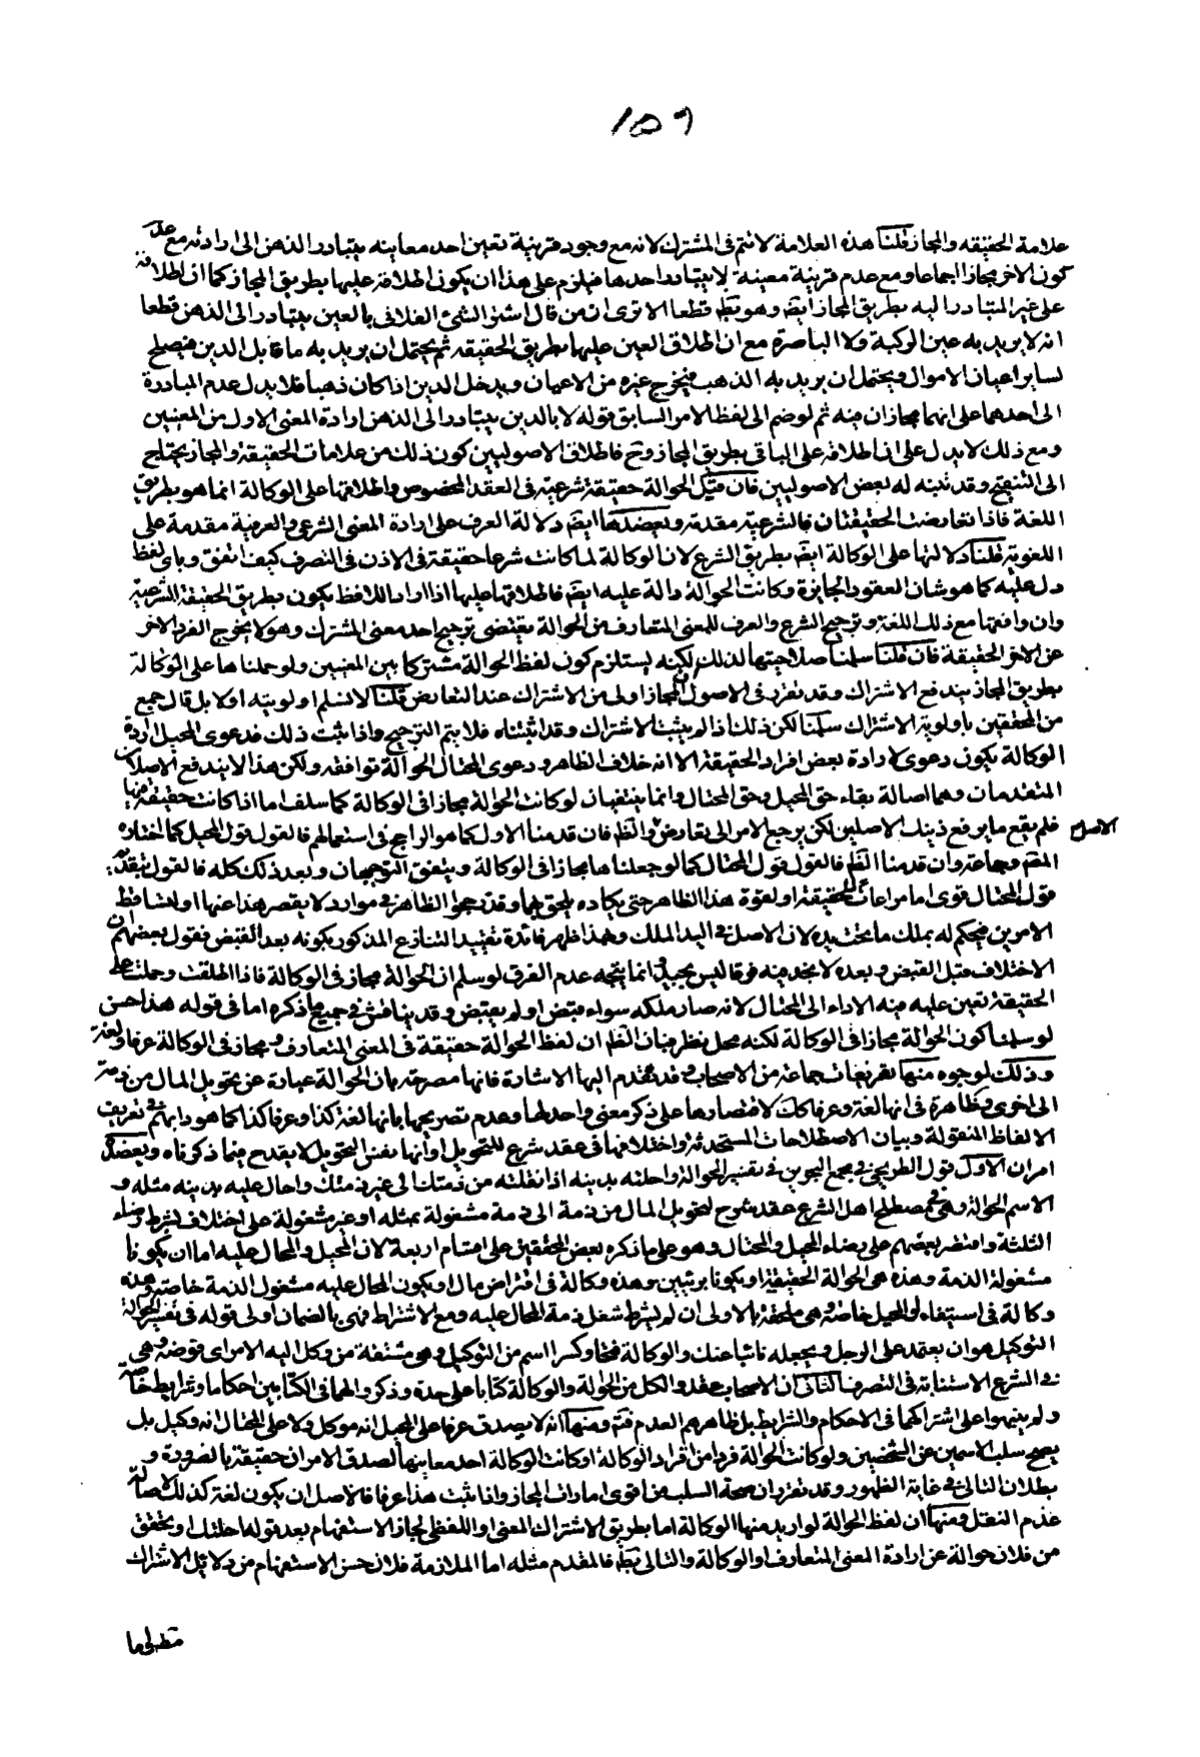 ١٥٩
علامة الحقيقه والمجاز قلنا هذه العلامة لا تتم فى المشترك لانه مع وجود قرينية تعين احد معانيه يتبادر الذهن الى ارادته مع عد
كون الاخر مجازا اجماعا ومع عدم قرينة معينة لا يتبادر احدها فيلزم على هذا ان يكون اطلاقه عليها بطريق المجاز كما ان اطلاقه
على غير المتبادر اليه بطريق المجاز ايضا وهو بط قطعا الا ترى ان من قال اشتر الشئ الفلانى بالعين يتبادر الى الذهن قطعا
انه لا يريد به عين الركبة ولا الباصرة مع ان اطلاق العين عليها بطريق الحقيقه ثم يحتمل ان يريد به ما قابل الدين فيصلح
لساير اعيان الاموال ويحتمل ان يريد به الذهب فيخرج غيره من الاعيان ويدخل الدين اذا كان ذهبا فلا يدل عدم المبادرة
الى احدهما على انهما مجازان منه ثم لو ضم الى لفظ الامر السابق قوله لا بالدين يتبادر الى الذهن ارادة المعنى الاول من المعنيين
ومع ذلك لا يدل على ان اطلاقه على الباقى بطريق المجاز وح فاطلاق الاصوليين كون ذلك من علامات الحقيقة والمجاز يحتاج
الى التنقيح وقد تنبه له بعض الاصوليين فان قيل الحوالة حقيقة شرعية فى العقد المخصوص واطلاقها على الوكالة انما هو بطريق
اللغة فاذا تعارضت الحقيقتان فالشرعية مقدمة ويعضدها ايضا دلالة العرف على ارادة المعنى الشرعى والعرفية مقدمة على
اللغوية قلنا دلالتها على الوكالة ايضا بطريق الشرع لان الوكالة لما كانت شرعا حقيقة فى الاذن فى التصرف كيف اتفق وباى لفظ
دل عليه كما هو شان العقود الجايزة وكانت الحوالة دالة عليه ايضا فاطلاقها عليها اذا اراد اللافظ يكون بطريق الحقيقة الشرعية
وان وافقها مع ذلك اللغة وترجيح الشرع والعرف للمعنى المتعارف من الحوالة يقتضى ترجيح احد معنى المشترك وهو لا يخرج الفرد الاخر
عن الاخر الحقيقة فان قلنا سلمنا صلاحيتها لذلك لكنه يستلزم كون لفظ الحوالة مشتركا بين المعنيين ولو حملناها على الوكالة
بطريق المجاز يندفع الاشتراك وقد تقرر فى الاصول ان المجاز اولى من الاشتراك عند التعارض قلنا لا نسلم اولويته اولا بل قال جمع
من المحققين باولوية الاشتراك سلمنا لكن ذلك اذا لم يثبت الاشتراك وقد اثبتناه فلا يتم الترجيح واذا ثبت ذلك فدعوى المحيل ارادة
الوكالة يكون دعوى لارادة بعض افراد الحقيقة الا انه خلاف الظاهر ودعوى المحتال الحوالة توافقه ولكن هذا لا يندفع الاصلان
المتقدمان وهما اصالة بقاء حق المحيل وحق المحتال وانما ينتفيان لو كانت الحوالة مجازا فى الوكالة كما سلف اما اذا كانت حقيقة فيها
فلم يقع ما يرفع ذينك الاصلين لكن يرجع الامر الى تعارض والظ فان قدمنا الاول كما هو الراجح فى استعمالهم فالقول قول المحيل كما اختاره
الاصل
المصَ وجماعة وان قدمنا الظ فالقول قول المحتال كما لو جعلناها مجازا فى الوكالة ويتفق التوجيهان وبعد ذلك كله فالقول بتقديم
قول المحتال قوى اما مراعاة للحقيقة او لقوة هذا الظاهر حتى يكاد يلحق بها وقد رجحوا الظاهر فى موارد لا يقصر هذا عنها او لتساقط
الامرين فيحكم له بملك ما تحت يده لان الاصل فى اليد الملك وبهذا ظهر فائدة تقييد التنازع المذكور بكونه بعد القبض فقول بعضهم ان
الاختلاف قبل القبض وبعده لا يجد فيه فرقا ليس بجيد وانما يتجه عدم الفرق لو سلم ان الحوالة مجاز فى الوكالة فاذا اطلقت وحملت على
الحقيقة تعين عليه منه الاداء الى المحتال لانه صار ملكه سواء قبض او لم يقبض وقد يناقش فى جميع ما ذكره اما فى قوله هذا حسن
لو سلمنا كون الحوالة مجازا فى الوكالة لكنه محل نظر فبان الظ ان لفظ الحوالة حقيقة فى المعنى المتعارف ومجاز فى الوكالة عرفا ولغة
وذلك لوجوه منها تعريفات جماعة من الاصحاب وقد تقدم اليها الاشارة فانها مصرحة بان الحوالة عبارة عن تحويل المال من ذمة
الى اخرى وظاهرة فى انها لغة وعرفا كك لاقتصارها على ذكر معنى واحد لها وعدم تصريحها بانها لغة كذا وعرفا كذا كما هو دابهم فى تعريف
الالفاظ المنقولة وبيان الاصطلاحات المستحدثة واختلافها فى عقد شرع للتحويل او انها نفس التحويل لا يقدح فيما ذكرناه ويعضده
امران الاول قول الطريحى فى مجمع البحرين فى تفسير الحوالة واحلته بدينه اذا نقلته من ذمتك الى غير ذمتك واحال عليه بدينه مثله و
الاسم الحوالة وهى فى مصطلح اهل الشرع عقد شرح لتحويل المال من ذمة الى ذمة مشغولة بمثله او غير مشغولة على اختلاف بشرط رضاء
الثلثة واقتصر بعضهم على رضاء المحيل والمحتال وهو على ما ذكره بعض المحققين على اقسام اربعة لان المحيل والمحال عليه اما ان يكونا
مشغولة الذمة وهذه هى الحوالة الحقيقة او يكونا بريئين وهذه وكالة فى اقتراض مال او يكون المحال عليه مشغول الذمة خاصة وهذه
وكالة فى استيفاء او المحيل خاصة وهى ملحقة بالاولى ان لم يشرط شغل ذمة المحال عليه ومع الاشتراط فهى بالضمان اولى قوله فى تفسير الحوالة
التوكيل هو ان يعتمد على الرجل ويجعله نائبا عنك والوكالة فتحا وكسرا اسم من التوكيل وهى مشتقة من وكل اليه الامر اى فوضه وهى
فى الشرع الاستنابة فى التصرف الثانى ان الاصحاب عقدوا لكل من الحوالة والوكالة كتابا على حدة وذكروا لهما فى الكتابين احكاما وشرايط خاصة
ولم ينبهوا على اشتراكهما فى الاحكام والشرايط بل ظاهرهم العدم فتم ومنها انه لا يصدق عرفا على المحيل انه موكل ولا على المحتال انه وكيل بل
يصح سلب الاسمين عن الشخصين ولو كانت الحوالة فردا من افراد الوكالة او كانت الوكالة احد معانيها لصدق الامران حقيقة بالضرورة و
بطلان التالى فى غاية الظهور وقد تقرر ان صحة السلب من اقوى امارات المجاز واذا ثبت هذا عرفا فالاصل ان يكون لغة كذلك لاصالة
عدم النقل ومنها ان لفظ الحوالة لو اريد منها الوكالة اما بطريق الاشتراك المعنى او اللفظى لجاز الاستفهام بعد قوله احلتك او يحقق
من فلان حوالة عن ارادة المعنى المتعارف او الوكالة والتالى بط فالمقدم مثله اما الملازمة فلان حسن الاستفهام من دلائل الاشتراك